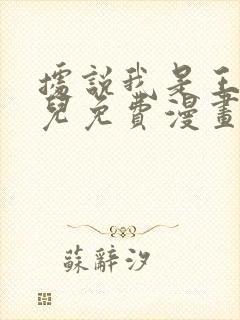 據說我是王
兒免費漫畫
蘇辭汐